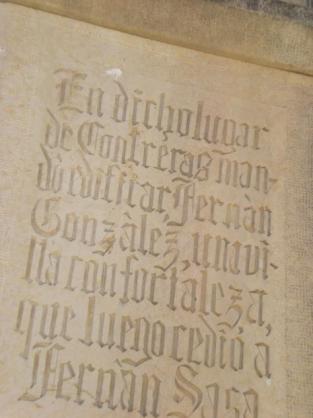 En dicho lugar
de Contreras man-
dò edificar Fernàn
Gonzàlez, una vi-
lla con fortaleza,
que luego cediò a
Fernàn Sara